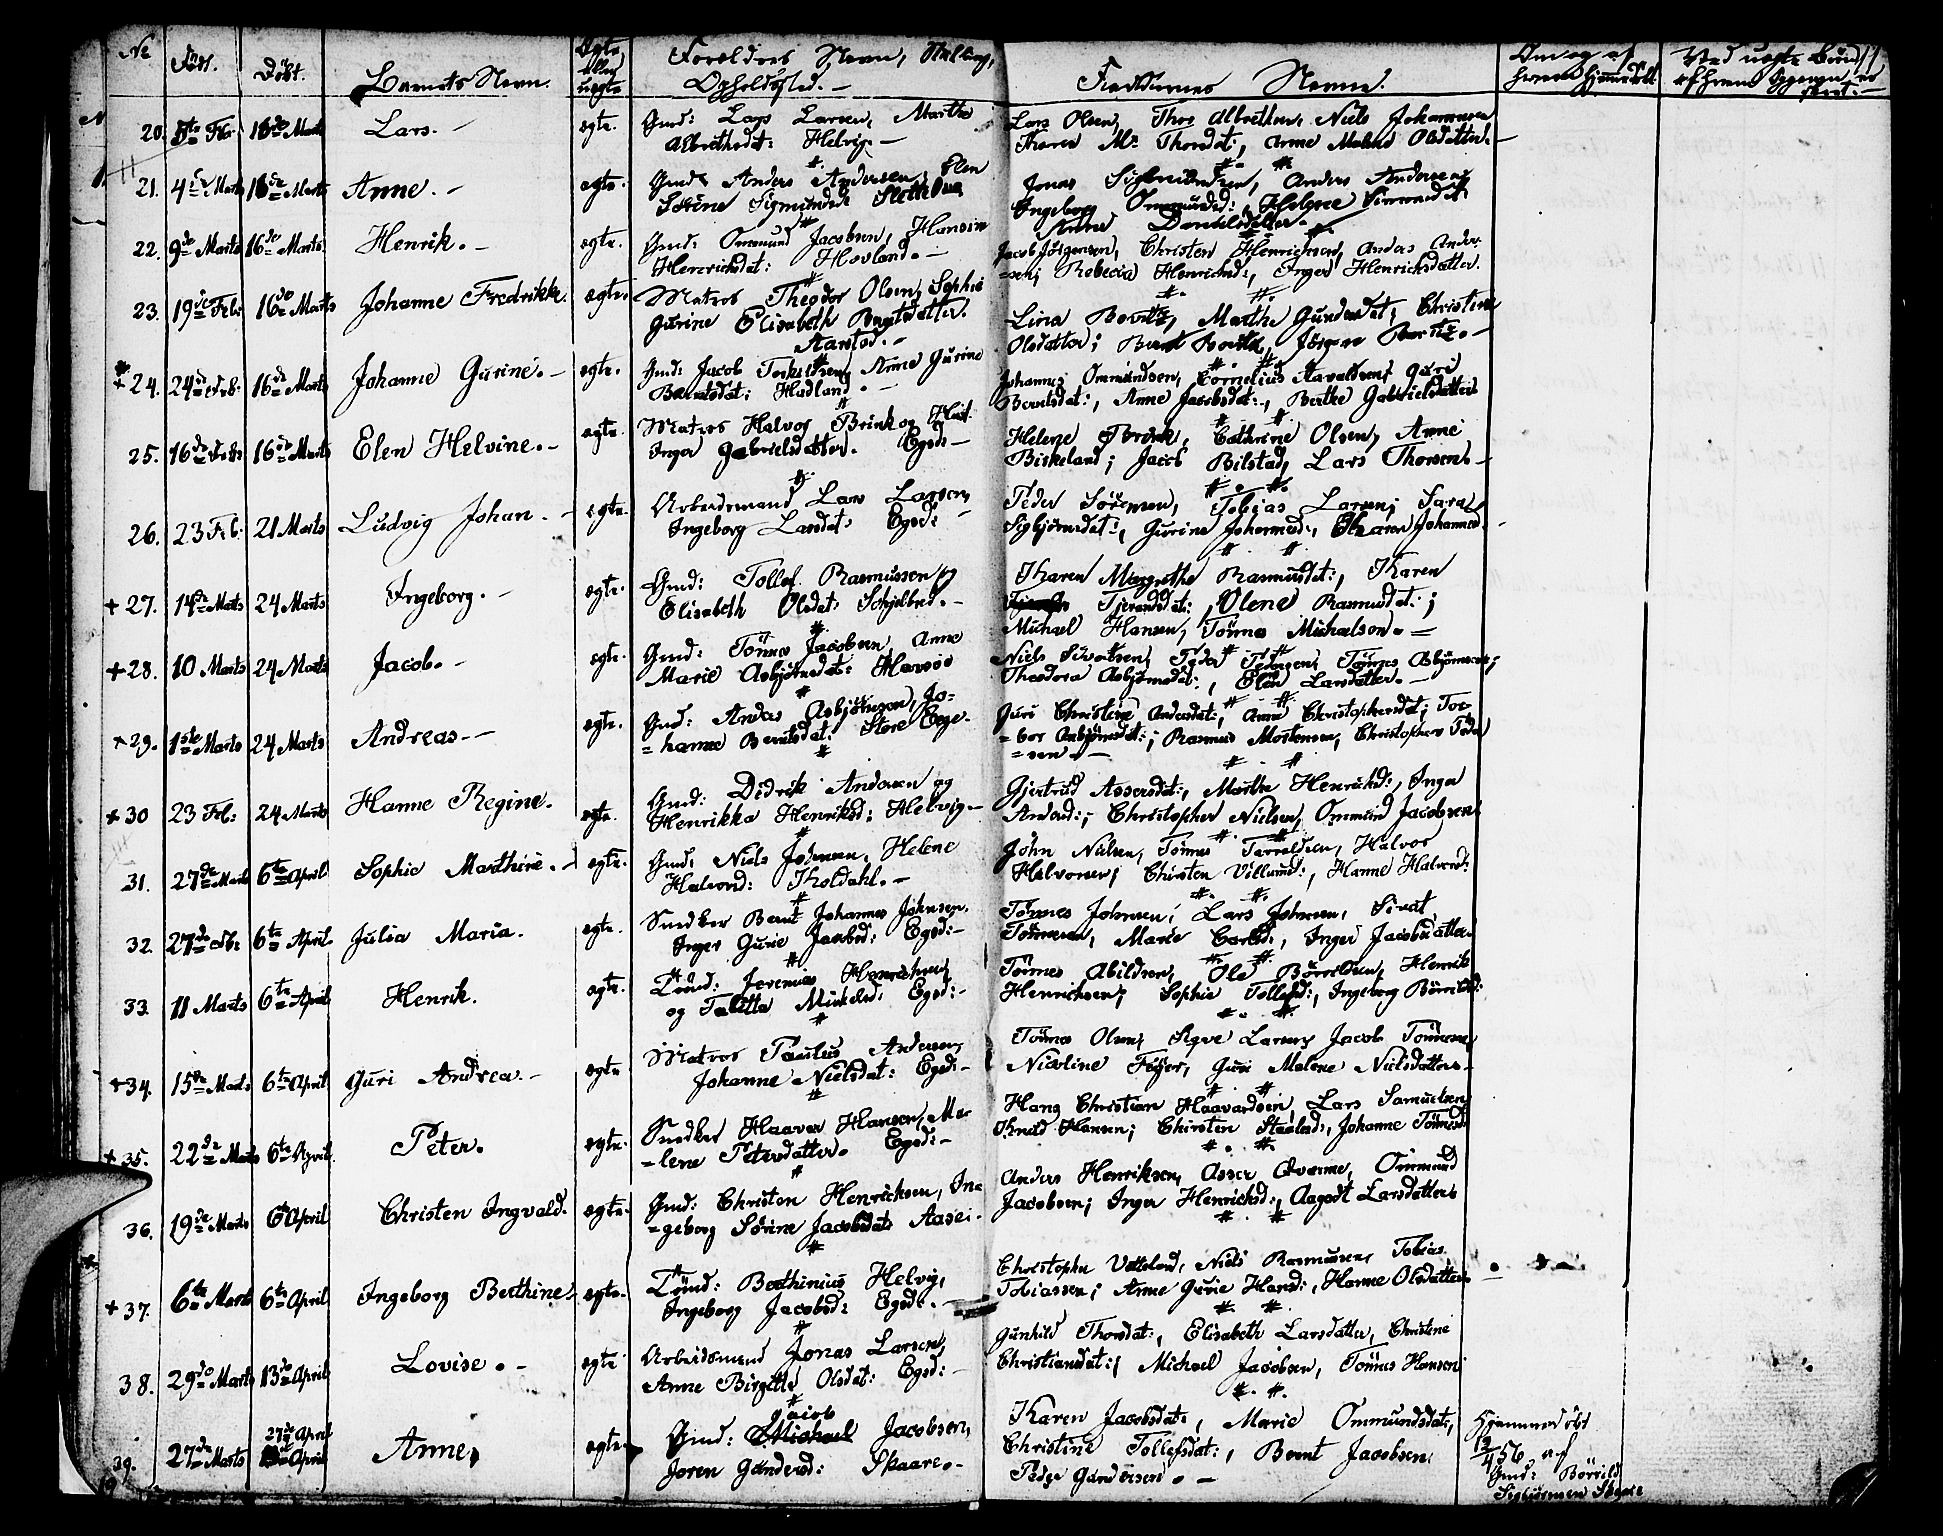 No Født. Døbt. Barnets Navn. Egte eller uegte Forældres Navn, Stilling, Opholdssted. — Faddernes Navne. Om og af hvem hjemmedøbt
20. 16de Marts Lars. — egte. Gmd: Lars Larsen, Marthe
Albrethsdat: Helvig —
Lars Olsen, Thore Albrethsen, Niels Johannesen
Thoresdat:, Anne Malene Olsdatter. —
21. 4de Marts 16de Marts Anne. — egte. Gmd: Anders Andersen, Elen
Serine Sigmundsd: Slettebøe
Jonas Sigbjørnsen, Anders Andersen,
Ingeborg Ommundsd:, Helene
Anne Danielsdatter. —
22. 9de Marts 16de Marts. Henrik. — egte. Gmd: Ommund Jacobsen, Hansine
Henrichsdat: Hovland. —
Jacob Jörgensen, Christen Henrichsen, Anders Ander-
=sen; Rebecca Henrichsd:, Inger Henrichsdatter.
23. 19de Feb: 16de Marts Johanne Fredrikke. egte. Matros Theodor Olsen, Sophie
Gurine Elisabeth Berntsdatter.
Aarstad. —
Lina Marthe Gundersdat:, Christine
Olsdatter; Bernt Jörgen
+ 24. 24de Feb: 16de Marts Johanne Gurine. — egte. Gmd: Jacob Torkelsen, Anne Gurine
Berntsdat: Hadland. —
Johannes Ommundsen, Cornelius Aavaldsen, Guri
Berntsdat:, Anne Jacobsdat:, Berthe Gabrielsdatter
25. 16de Febr 16de Marts Elen Helvine. — egte. Matros Halvor Brink og Hust.
Inger Gabrielsdatter. Egsd: —
Helene Brink, Cathrine Olsen, Anne
Birkeland; Jacob Bilstad, Lars Thorsen. —
26. 23 Feb: 21 Marts Ludvig Johan. — egte. Arbeidsmand Lars Larsen,
Ingeborg Larsdat: Egsd: —
Peder Sörensen, Tobias Larsen; Sara
Sigbjörnsdat:, Gurine Johannesd:, Johannesd:
+ 27. 14de Marts 24 Marts Ingeborg. — egte. Gmd: Tollef Rasmussen og
Elisabeth Olsdat: Skjelbred. —
Karen Margrethe Rasmusdat:, Karen
Tjerandsdat:, Olene Rasmusdat:;
Michael Hansen, Tönnes Michaelsen. =
+ 28. 10 Marts 24 Marts Jacob. — egte. Gmd: Tönnes Jacobsen, Anne
Marie Asbjörnsdat: Havsöe
Niels Sivertsen, Peder Pedersen, Tönnes Asbjörnsen;
Theodora Asbjörnsdat:, Elen Larsdatter. —
+ 29. 1ste Marts 24 Marts Andreas. — egte. Gmd: Anders Asbjörnsen, Jo=
=hanne Berntsdat: Store Eege-
Guri Christine Andersdat:, Anne Christophersdat; Tor-
=bor Asbjörnsdat:; Rasmus Mortensen, Christopher Peder
=sen. —
+ 30 23 Feb: 24 Marts Hanne Regine. egte. Gmd: Didrik Andersen og
Henrikka Henriksd: Helvig —
Gjertrud Assersdat:, Marthe Henrichsd:, Inger
Andersd:; Christopher Nielsen, Ommund Jacobsen
31. 27de Marts 6te April Sophie Marthine. — egte. Gmd: Niels Johnsen, Helene
Halvorsd: Tholdahl. —
John Nielsen, Tönnes Halvor
Halvorsen; Christen Villumsd:, Hanne Halvorsd:
32. 27de Feb: 6te April Julia Maria. egte. Snedker Bernt Johannes Johnsen.
Inger Gurie Jacobsd: Egsd: —
Tönnes Johnsen, Lars Johnsen, Sivert
Tönnesen, Marie Inger Jacobsdatter
33. 11 Marts 6te April Henrik. egte. Jeremias Henrichsen
og Talette Mickelsd: Egsd: —
Tönnes Abildsen, Ole Börrildsen, Henrik
Henrichsen; Sophie Tollefsd:, Ingeborg Börrildsd:
+ 34. 15de Marts 6te April Guri Andrea. — egte Matros Paulus Andersen,
Johanne Nielsdat: Egsd: —
Tönnes Olsen, Aqve Larsen, Jacob Tönnesen
Nicoline Guri Malene Nielsdatter. —
+ 35. 22de Marts 6te April. Peter. egte. Snedker Haaver Hansen, Ma-
=lene Petersdatter. Egsd: —
Hans Christian Haavardsen, Lars Samuelsen,
Knud Hansen; Christen Johanne Tönnesd:
36. 19de Marts 6te April Christen Ingvald. egte. Gmd: Christen Henrichsen, In=
=geborg Serine Jacobsdat: Aasei-
Anders Henriksen, Asser Qværne, Ommund
Jacobsen; Inger Henrichsd:, Aagodt Larsdatter
+ 37. 6te Marts 6te April Ingeborg Berthine. egte. Berthinius Helvig,
Ingeborg Jacobsd: Egsd: —
Christopher Vatteland, Niels Rasmussen, Tobias
Tobiassen; Anne Gurie Hansd:, Hanne Olsdatter
38. 29de Marts 13de April Lovise. — egte Arbeidsmand Jonas Larsen,
Anne Birgitte Olsdat: Egsd: —
Gunhild Thorsdat:, Elisabeth Larsdatter, Christine
Christiansdat:; Michael Jacobsen, Tönnes Hansen
39. 27de Marts 27de April Anne. egte. Gmd: Jacob Jacobsen,
Joren Gundersd: Skaare. —
Karen Jacobsdat:, Marie Ommundsdat:,
Christine Tollefsdat:, Bernt Jacobsen
Peder Gundersen. —
Hjemmedøbt
af
Gmd: Börrild
Sigbjörnsen